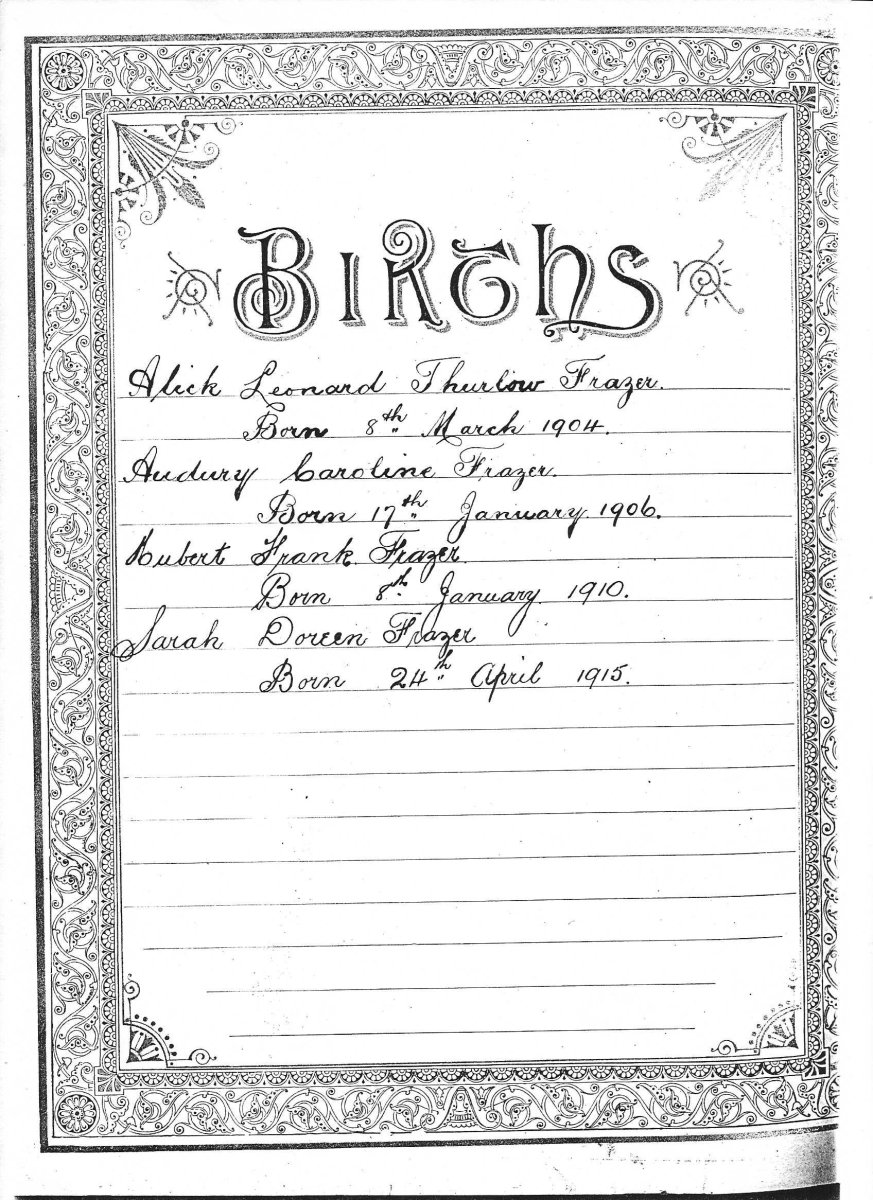 Births
Alick Leonard Thurlow Frazer.
Born 8th March 1904.
Audury Caroline Frazer.
Born 17th January 1906.
Hubert Frank Frazer
Born 8th January 1910.
Sarah Doreen Frazer
Born 24th April 1915.